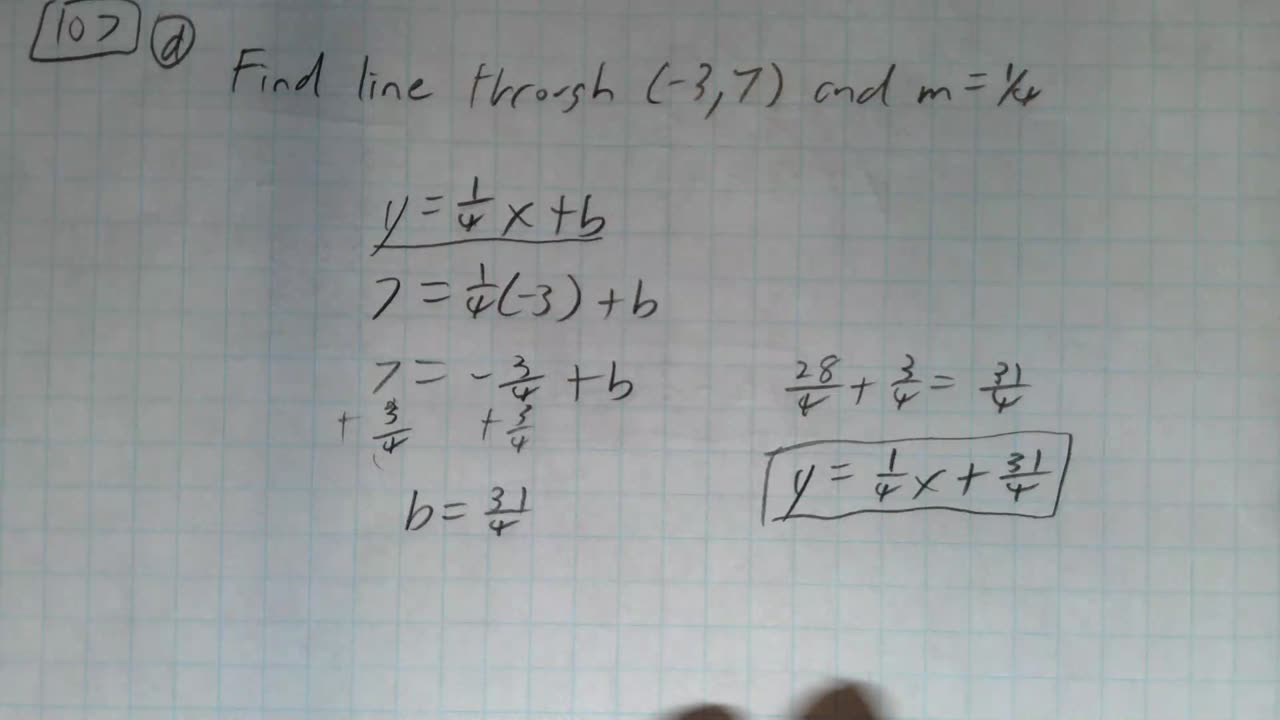 107 d
Find line through (-3,7) and m=1/4
y = 1/4 x + b
7 = 1/4(-3) + b
7 = - 3/4 + b
+ 3/4 + 3/4
b = 31/4
28/4 + 3/4 = 31/4
y = 1/4 x + 31/4